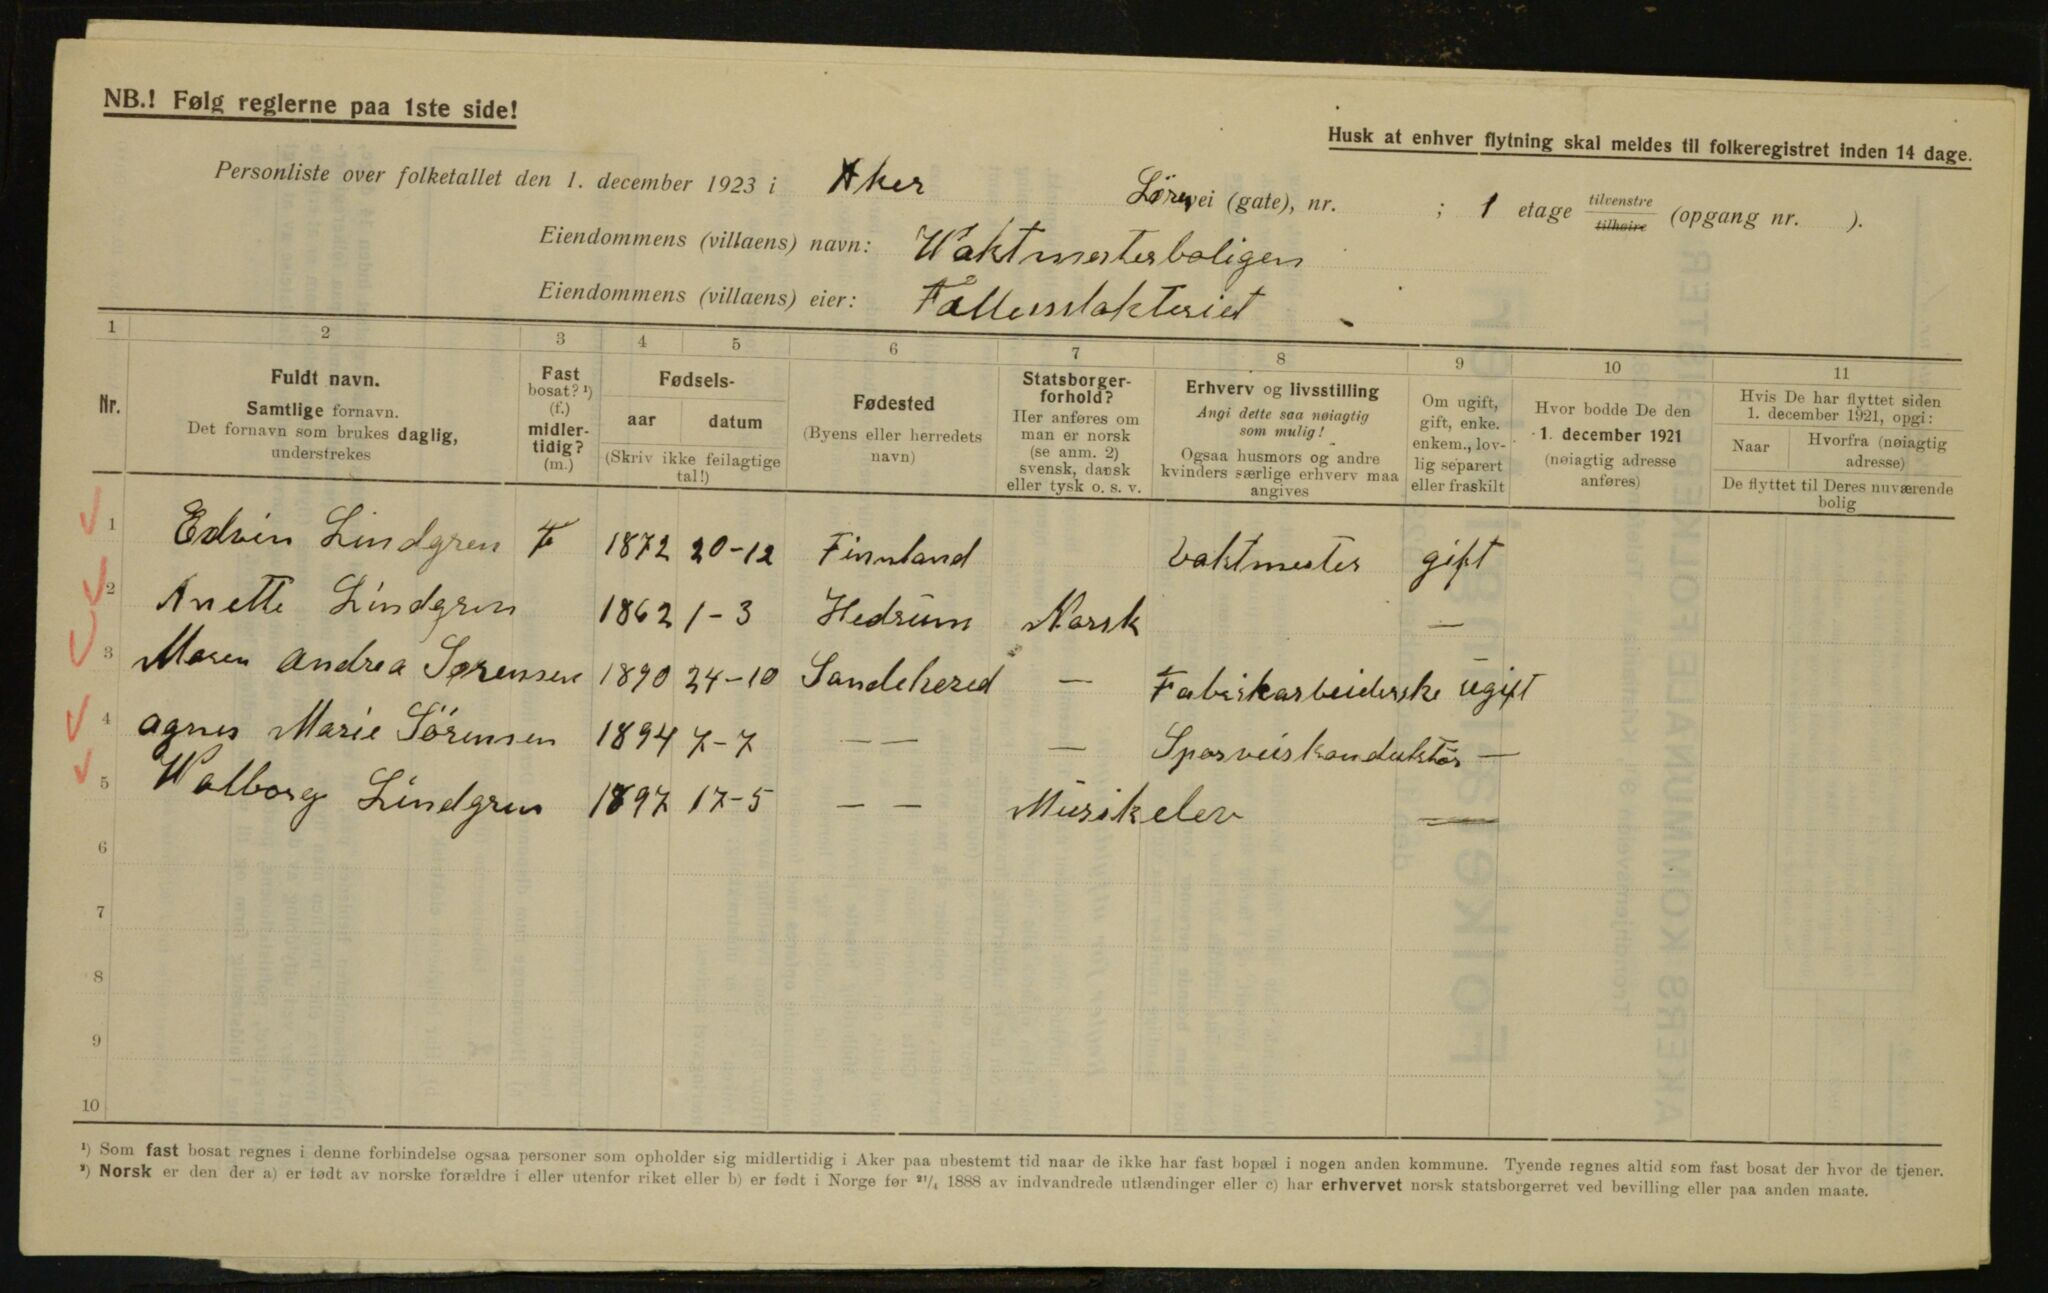 NB.! Følg reglerne paa 1ste side!
Husk at enhver flytning skal meldes til folkeregistret inden 14 dage.
Personliste over folketallet den 1. december 1923 i Aker Lörenvei (gate), nr. ; 1 etage tilvenstre tilhøire (opgang nr. ).
Eiendommens (villaens) navn: Waktmesterboligen
Eiendommens (villaens) eier: Fællesslakteriet
1 2 3 4 5 6 7 8 9 10 11
Nr.
Fuldt navn.
Samtlige fornavn.
Det fornavn som brukes daglig,
understrekes
Fast
bosat? ¹)
(f.)
midler-
tidig?
(m.)
Fødsels-
aar datum
(Skriv ikke feilagtige
tal!)
Fødested
(Byens eller herredets
navn)
Statsborger-
forhold?
Her anføres om
man er norsk
(se anm. 2)
svensk, dansk
eller tysk o. s. v.
Erhverv og livsstilling
Angi dette saa nøiagtig
som mulig!
Ogsaa husmors og andre
kvinders særlige erhverv maa
angives
Om ugift,
gift, enke.
enkem., lov-
lig separert
eller fraskilt
Hvor bodde De den
1. december 1921
(nøiagtig adresse
anføres)
Hvis De har flyttet siden
1. december 1921, opgi:
Naar Hvorfra (nøiagtig
adresse)
De flyttet til Deres nuværende
bolig
1 Edvin Lindgren F 1872 20-12 Finnland Vaktmester gift
2 Anette Lindgren 1862 1-3 Hedrum Norsk —
3 Maren Andrea Sørensen 1890 24-10 Sandehered — Fabrikarbeiderske ugift
4 Agnes Marie Sörensen 1894 7-7 — — — Sporveiskonduktör —
5 Walborg Lindgren 1897 17-5 — — Musikelev —
6
7
8
9
10
¹) Som fast bosat regnes i denne forbindelse ogsaa personer som opholder sig midlertidig i Aker paa ubestemt tid naar de ikke har fast bopæl i nogen anden kommune. Tyende regnes altid som fast bosat der hvor de tjener.
²) Norsk er den der a) er født av norske forældre i eller utenfor riket eller b) er født i Norge før ²¹/₄ 1888 av indvandrede utlændinger eller c) har erhvervet norsk statsborgerret ved bevilling eller paa anden maate.